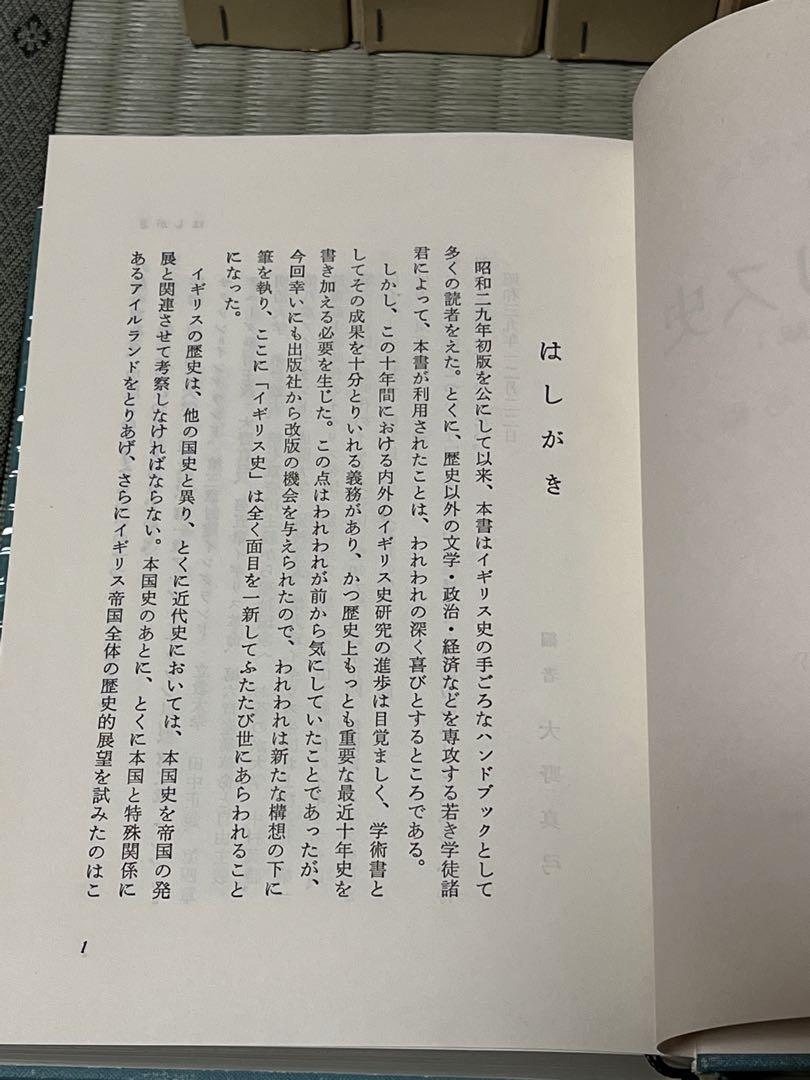 はしがき
昭和二九年初版を公にして以来、本書はイギリス史の手ごろなハンドブックとして
多くの読者をえた。とくに、歴史以外の文学・政治・経済などを専攻する若き学徒諸
君によって、本書が利用されたことは、われわれの深く喜びとするところである。
しかし、この十年間における内外のイギリス史研究の進歩は目覚ましく、学術書と
してその成果を十分とりいれる義務があり、かつ歴史上もっとも重要な最近十年史を
書き加える必要を生じた。この点はわれわれが前から気にしていたことであったが、
今回幸いにも出版社から改版の機会を与えられたので、われわれは新たな構想の下に
筆を執り、ここに「イギリス史」は全く面目を一新してふたたび世にあらわれること
になった。
イギリスの歴史は、他の国史と異り、とくに近代史においては、本国史を帝国の発
展と関連させて考察しなければならない。本国史のあとに、とくに本国と特殊関係に
あるアイルランドをとりあげ、さらにイギリス帝国全体の歴史的展望を試みたのはこ
1
編者 大野真弓